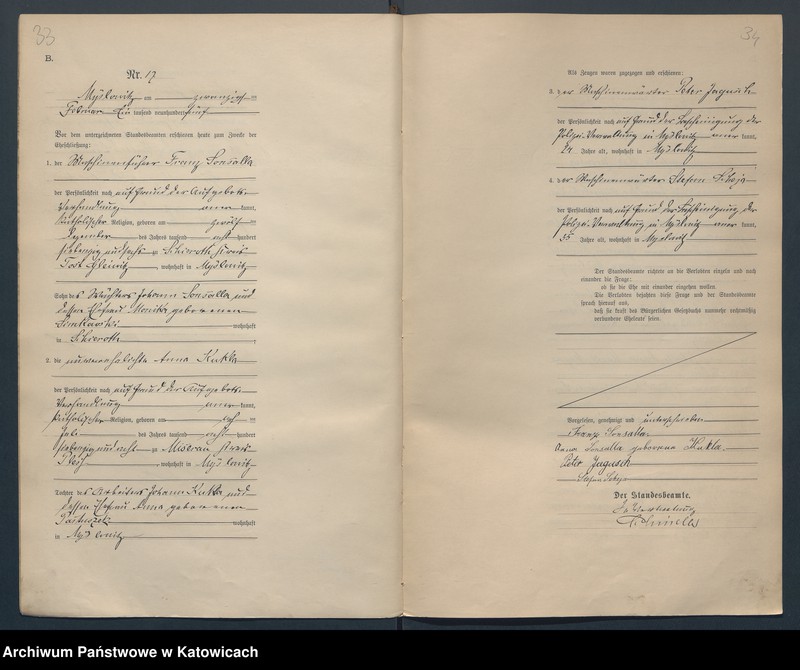 33
B.
Nr. 17
Myslowitz am zwanzigsten
Februar Ein tausend neunhundert fünf
Vor dem unterzeichneten Standesbeamten erschienen heute zum Zwecke der
Eheschließung:
1. der Maschinenführer Franz Sonsalla
der Persönlichkeit nach auf Grund der Aufgebots-
Verhandlung aner kannt,
katholischer Religion, geboren am
Dezember des Jahres tausend acht hundert
siebenzig und zu Schieroth Kreis
Tost Gleiwitz, wohnhaft in Myslowitz
Sohn des Wächters Johann Sonsalla und
dessen Ehefrau Monika geborenen
wohnhaft
in Schieroth
2. die unverehelichte Anna Kukla
der Persönlichkeit nach auf Grund der Aufgebots-
Verhandlung aner kannt,
katholischer Religion, geboren am
Juli des Jahres tausend acht hundert
siebenzig und acht zu Miserau Kreis
Pleß, wohnhaft in Myslowitz
Tochter des Arbeiters Johann Kukla und
dessen Ehefrau Anna geborenen
wohnhaft
in Myslowitz
34
Als Zeugen waren zugezogen und erschienen:
3. der Maschinenwärter Peter Jagusch
der Persönlichkeit nach auf Grund der Bescheinigung der
Polizei-Verwaltung in Myslowitz aner kannt,
Jahre alt, wohnhaft in Myslowitz
4. der Maschinenwärter Stefan
der Persönlichkeit nach auf Grund der Bescheinigung der
Polizei-Verwaltung in Myslowitz aner kannt,
35 Jahre alt, wohnhaft in Myslowitz
Der Standesbeamte richtete an die Verlobten einzeln und nach
einander die Frage:
ob sie die Ehe mit einander eingehen wollen.
Die Verlobten bejahten diese Frage und der Standesbeamte
sprach hierauf aus,
daß sie kraft des Bürgerlichen Gesetzbuchs nunmehr rechtmäßig
verbundene Eheleute seien.
Vorgelesen, genehmigt und unterschrieben
Franz Sonsalla
Anna Sonsalla geborene Kukla
Peter Jagusch
Stefan
Der Standesbeamte.
In Vertretung
Archiwum Państwowe w Katowicach